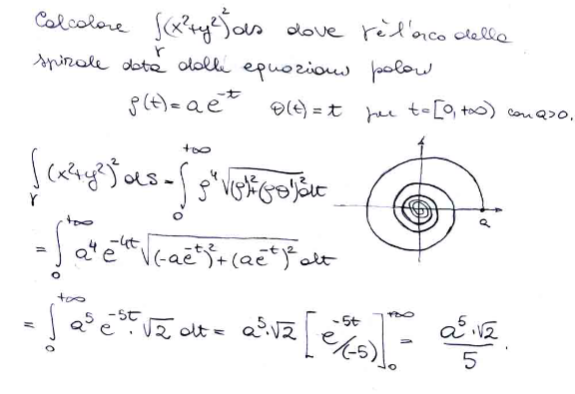 Calcolare ∫_γ (x²+y²)² ds dove γ è l'arco della
spirale data dalle equazioni polari
ρ(t) = a e^{-t}   θ(t) = t   per t=[0,+∞) con a>0.
∫_γ (x²+y²)² ds = ∫_0^{+∞} ρ⁴ √((ρ')²+(ρθ')²) dt
a
= ∫_0^{+∞} a⁴ e^{-4t} √((-ae^{-t})²+(ae^{-t})²) dt
= ∫_0^{+∞} a⁵ e^{-5t}·√2 dt = a⁵·√2 [e^{-5t}/(-5)]_0^{+∞} = a⁵·√2/5.